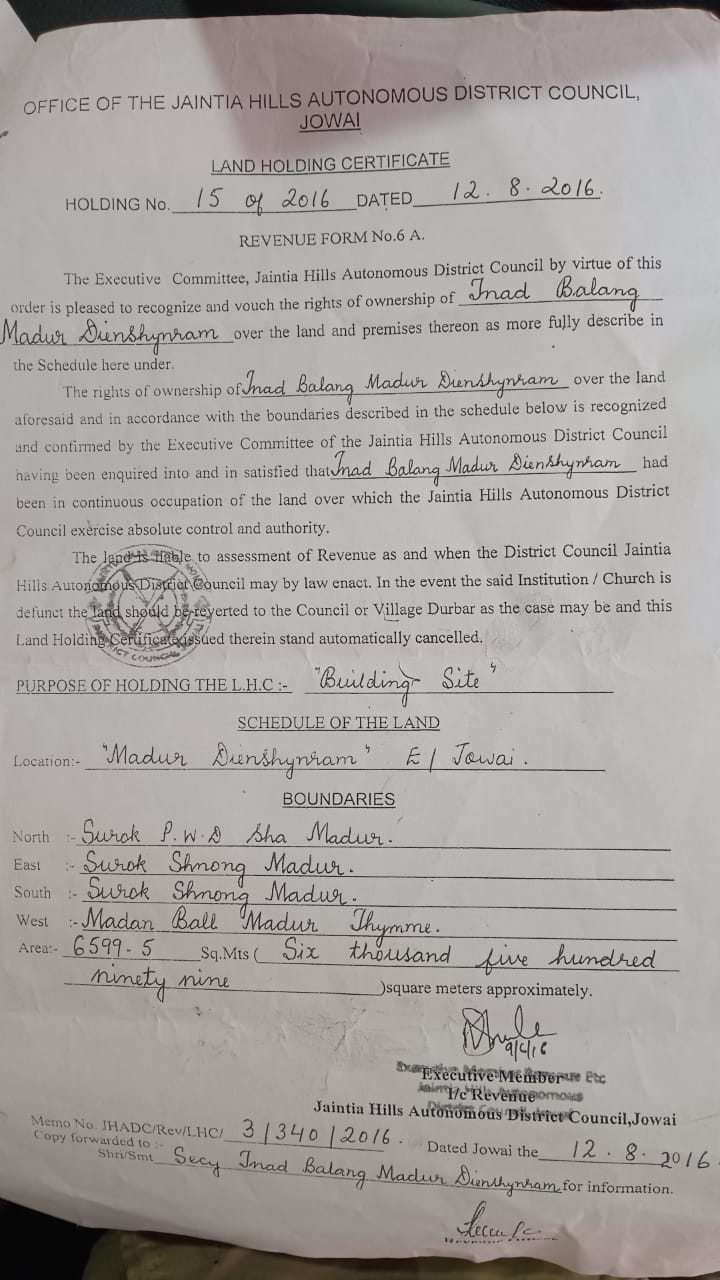 OFFICE OF THE JAINTIA HILLS AUTONOMOUS DISTRICT COUNCIL,
JOWAI
LAND HOLDING CERTIFICATE
HOLDING No. 15 of 2016 DATED 12.8.2016.
REVENUE FORM No.6 A.
The Executive Committee, Jaintia Hills Autonomous District Council by virtue of this
order is pleased to recognize and vouch the rights of ownership of Inad Balang
Madur Dienshynram over the land and premises thereon as more fully describe in
the Schedule here under.
The rights of ownership of Inad Balang Madur Dienshynram over the land
aforesaid and in accordance with the boundaries described in the schedule below is recognized
and confirmed by the Executive Committee of the Jaintia Hills Autonomous District Council
having been enquired into and in satisfied that Inad Balang Madur Dienshynram had
been in continuous occupation of the land over which the Jaintia Hills Autonomous District
Council exercise absolute control and authority.
The land is liable to assessment of Revenue as and when the District Council Jaintia
Hills Autonomous District Council may by law enact. In the event the said Institution / Church is
defunct the land should be reverted to the Council or Village Durbar as the case may be and this
Land Holding Certificate issued therein stand automatically cancelled.
PURPOSE OF HOLDING THE L.H.C :- "Building Site"
SCHEDULE OF THE LAND
Location:- "Madur Dienshynram" E/ Jowai.
BOUNDARIES
North :- Surok P.W.D sha Madur.
East :- Surok Shnong Madur.
South :- Surok Shnong Madur.
West :- Madan Ball Madur Thymme.
Area:- 6599.5 Sq.Mts ( Six thousand five hundred
ninety nine )square meters approximately.
9/6/16
Executive Member
I/c Revenue
Jaintia Hills Autonomous District Council,Jowai
Memo No. JHADC/Rev/LHC/ 3/340/2016. Dated Jowai the 12.8.2016
Copy forwarded to :-
Shri/Smt Secy Inad Balang Madur Dienshynram for information.